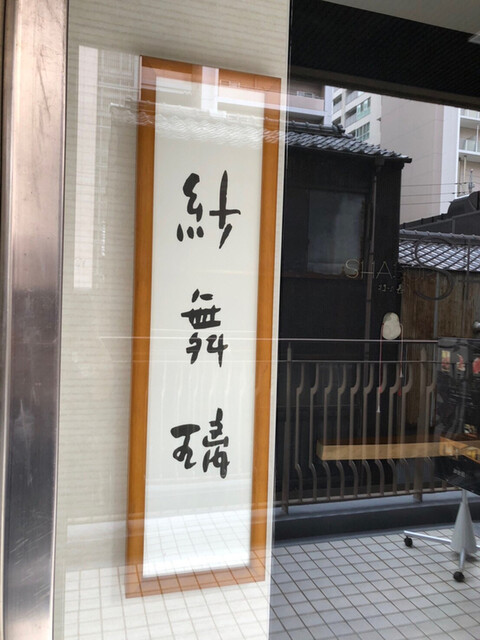 紗舞璃
SHA